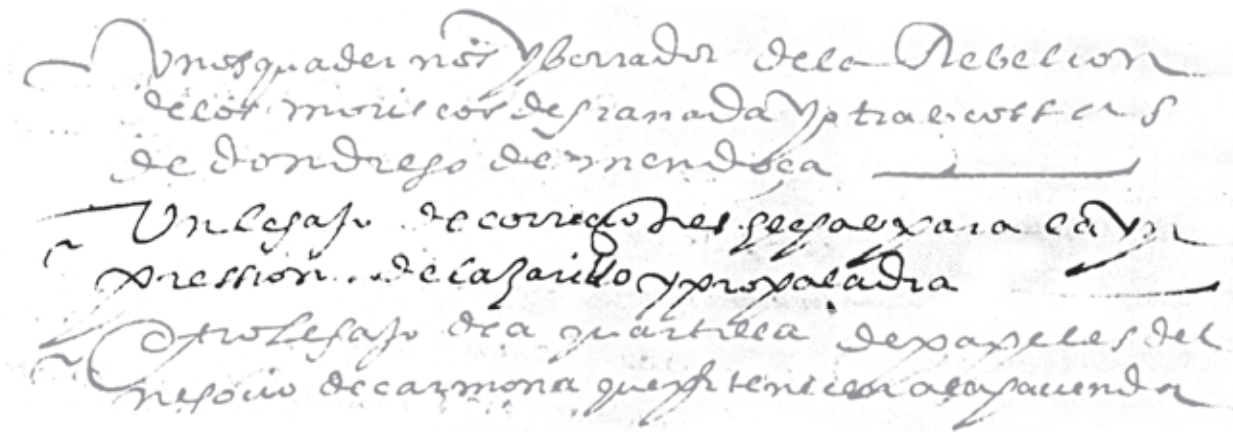 Unos quadernos y borrador dela Rebelion
delos moriscos de granada y otras cossas
de don diego de mendoça
Un legajo de correciones hechas para la yn
pression de lazarillo y propaladia
Otro legajo dea quartilla de papeles del
negocio de carmona que